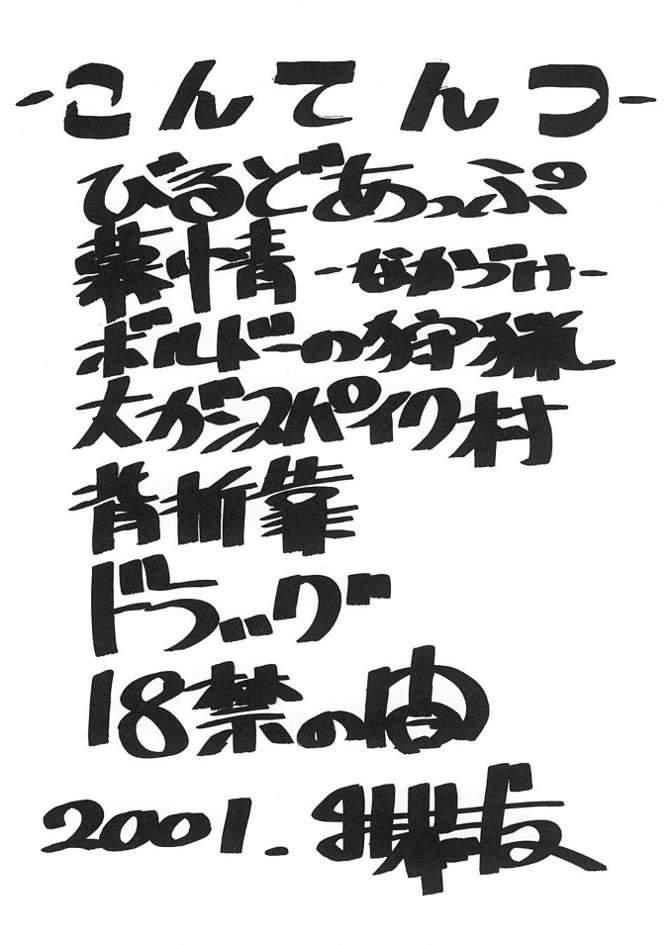 -こんてんつ-
びるどあっぷ
慕情 -なかづけ-
ボルドーの狩猟
大がスパイク村
背折靠
ドラッグ
18禁の由
2001.